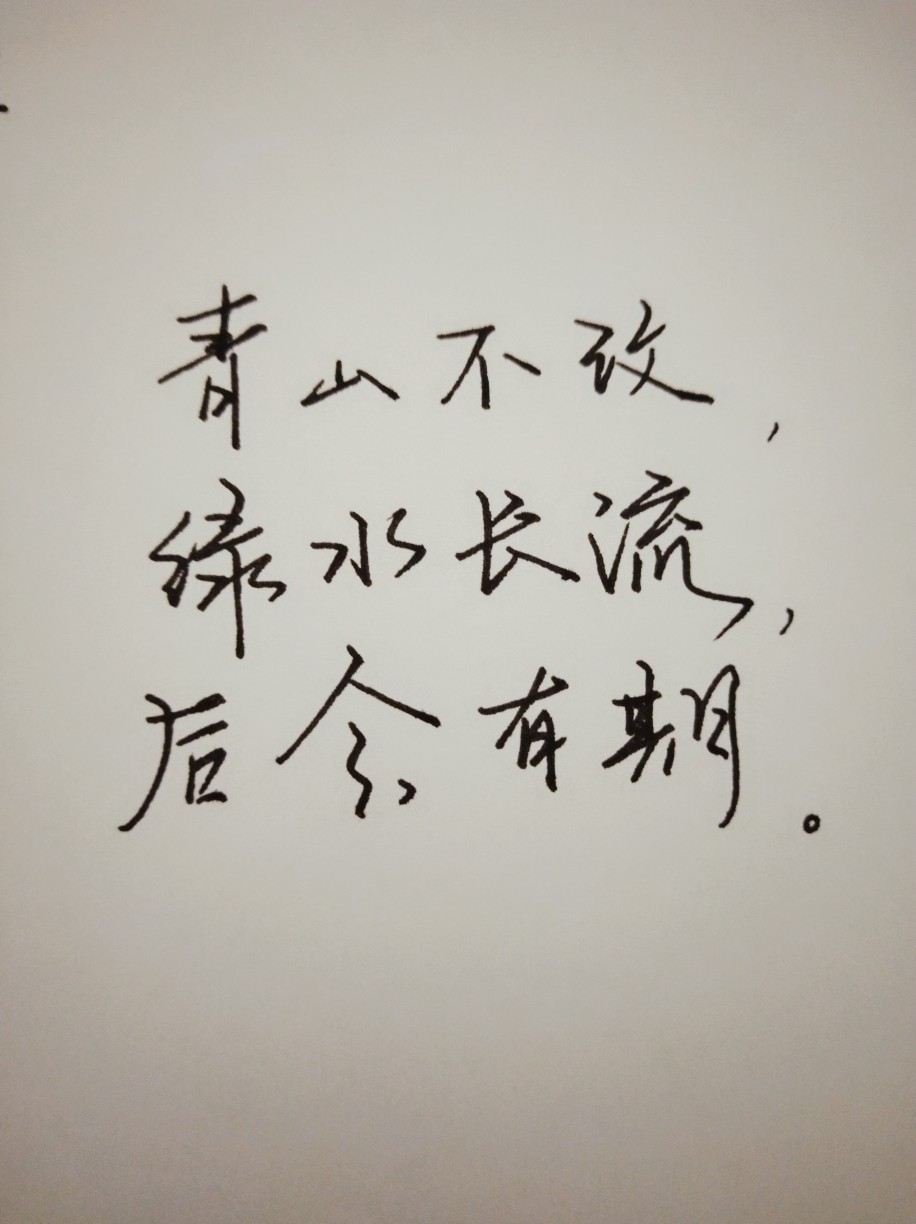 青山不改，
绿水长流，
后会有期。